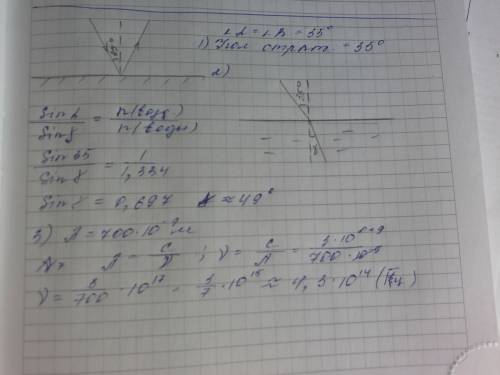 ∠α = ∠β = 35°
1) Угол отраж = 35°
35°
2)
35°
γ
sin α / sin γ = n(возд) / n(воды)
sin 35 / sin γ = 1 / 1,334
sin γ = 0,697 γ ≈ 49°
3) λ = 700·10⁻⁹ м
λ = c/ν ; ν = c/λ =
ν = 3/700 · 10¹⁷ = 3/7 · 10¹⁵ ≈ 4,3·10¹⁴ (Гц)